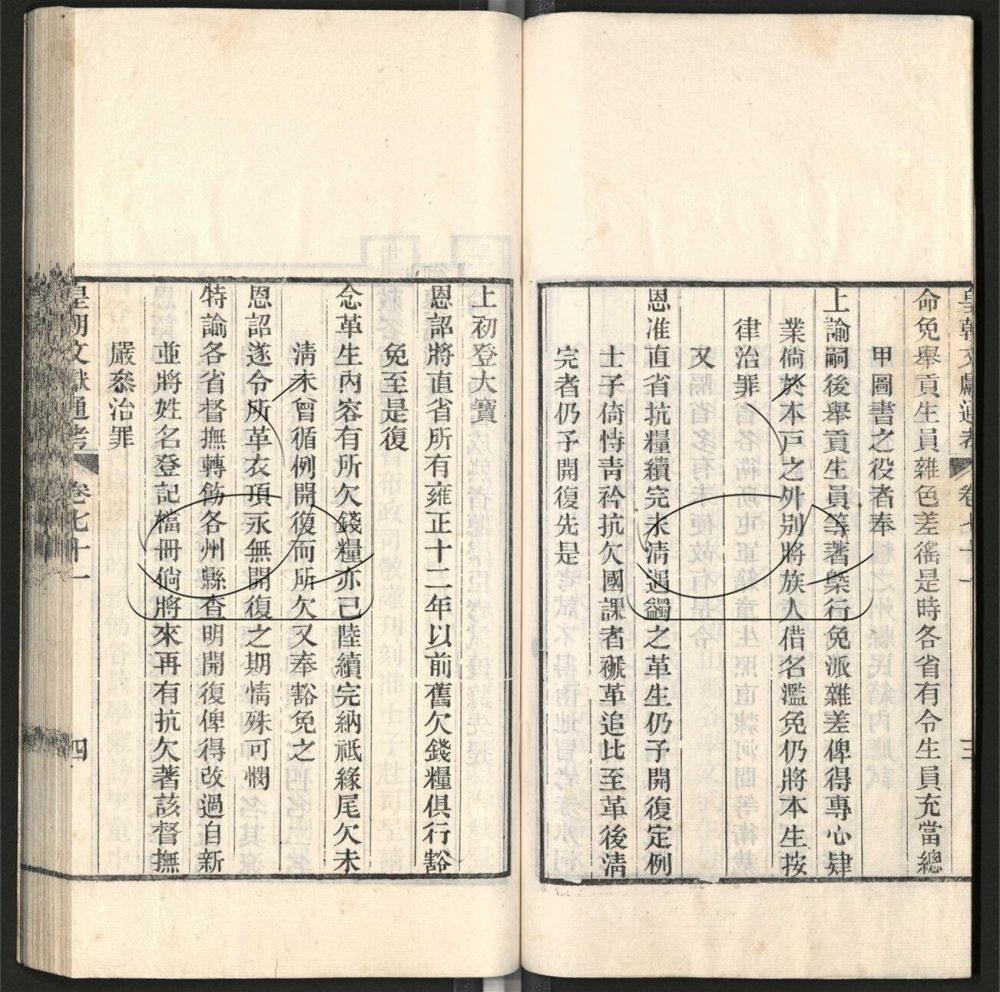 皇朝文獻通考 卷七十一 三
命免舉貢生員雜色差徭是時各省有令生員充當總
甲圖書之役者奉
上諭嗣後舉貢生員等著槩行免派雜差俾得專心肄
業倘於本戶之外别將族人借名濫免仍將本生按
律治罪
又
恩准直省抗糧續完未清遇蠲之革生仍予開復定例
士子倚恃青衿抗欠國課者褫革追比至革後清
完者仍予開復先是
上初登大寶
恩詔將直省所有雍正十二年以前舊欠錢糧俱行豁
免至是復
念革生內容有所欠錢糧亦已陸續完納祗緣尾欠未
清未曾循例開復而所欠又奉豁免之
恩詔遂令所革衣頂永無開復之期情殊可憫
特諭各省督撫轉飭各州縣查明開復俾得改過自新
並將姓名登記檔冊倘將來再有抗欠著該督撫
嚴叅治罪
皇朝文獻通考 卷七十一 四